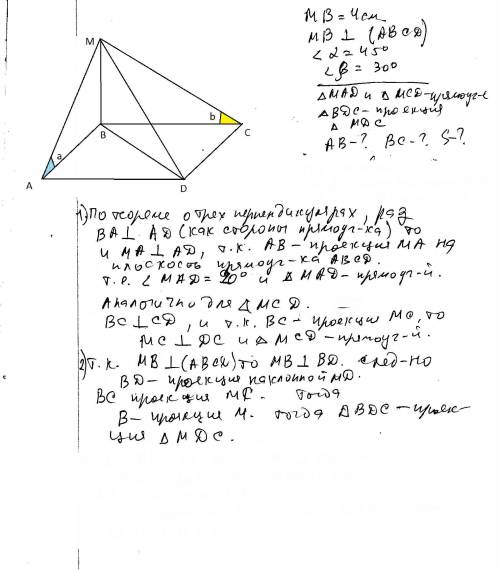 MB = 4 см
MB ⊥ (ABCD)
∠α = 45°
∠β = 30°
△MAD и △MCD - прямоуг-е
△BDC - проекция
△MDC
AB-? BC-? S-?
M
a
b
B
C
A
D
1) По теореме о трех перпендикулярах, раз
BA ⊥ AD (как стороны прямоуг-ка) то
и MA ⊥ AD, т.к. AB - проекция MA на
плоскость прямоуг-ка ABCD.
т.е. ∠MAD = 90° и △MAD - прямоуг-й.
Аналогично для △MCD.
BC ⊥ CD, и т.к. BC - проекция MC, то
MC ⊥ DC и △MCD - прямоуг-й.
2) т.к. MB ⊥ (ABCD) то MB ⊥ BD. след-но
BD - проекция наклонной MD.
BC проекция MC. Тогда
B - проекция M. тогда △BDC - проек-
ция △MDC.